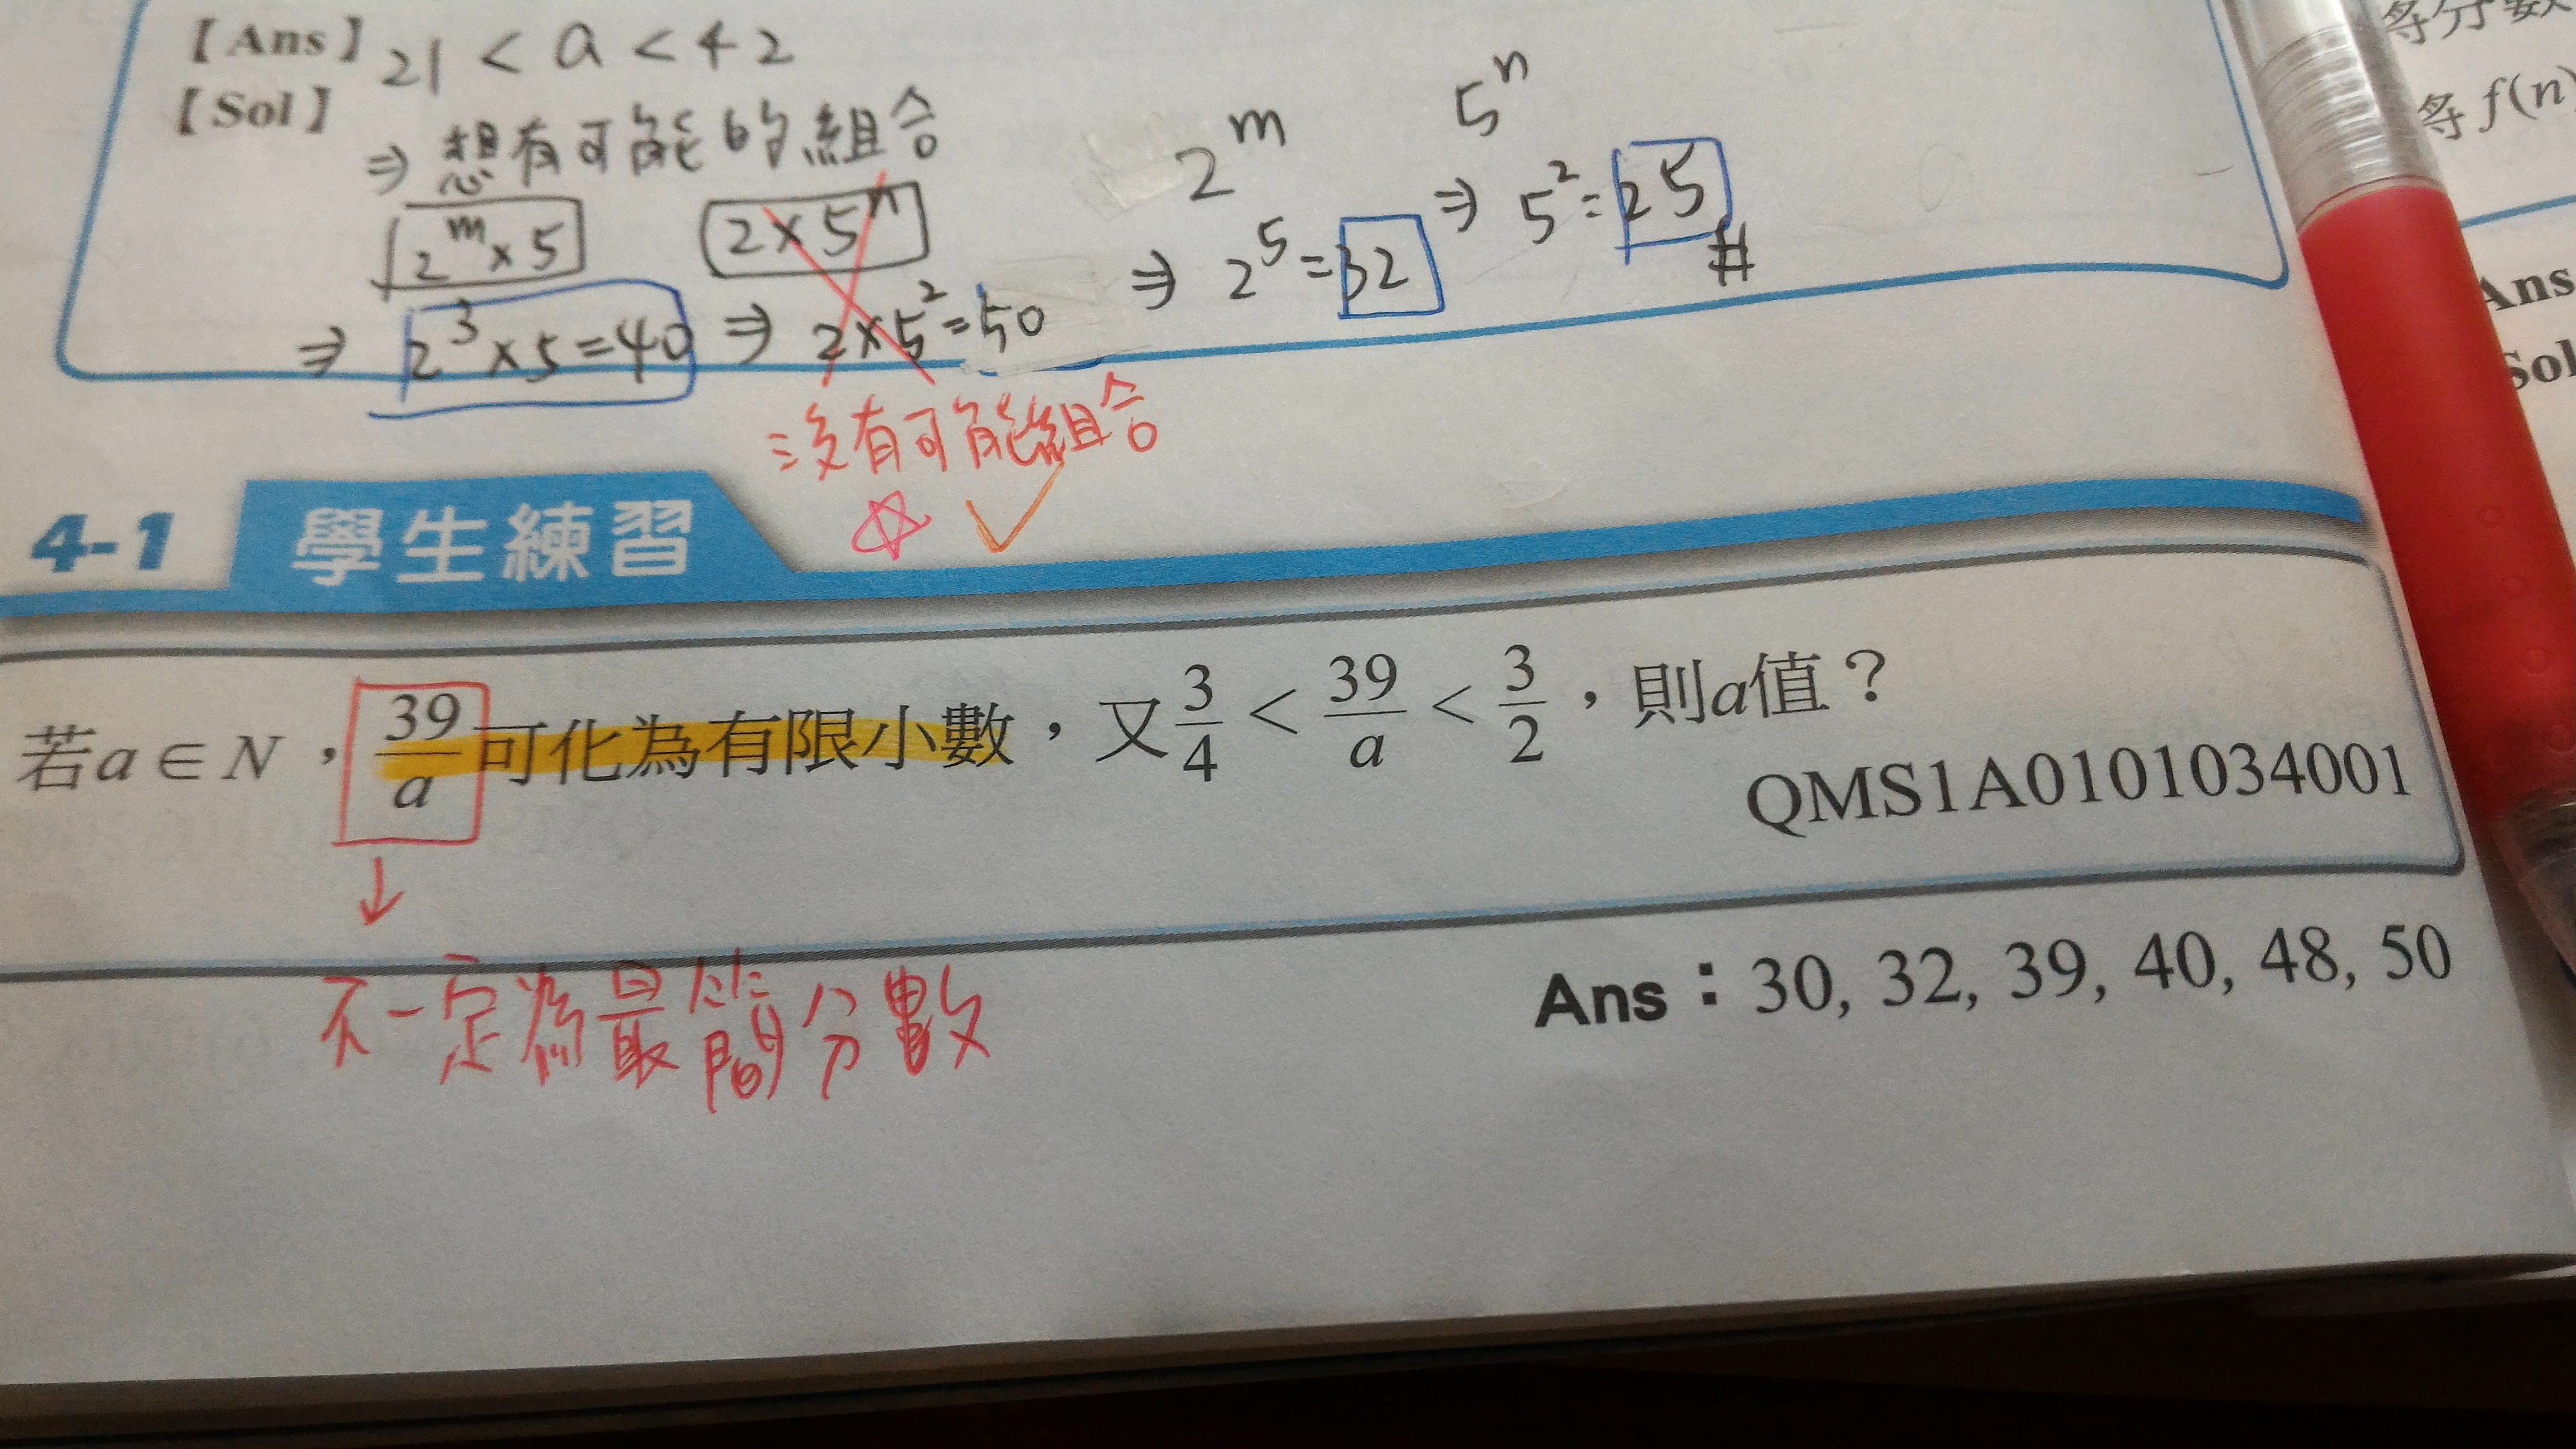 【Ans】21 < a < 42
【Sol】
⇒ 想有可能的組合
2^m × 5   2 × 5^n   2^m   5^n
⇒ 2^3 × 5 = 40 ⇒ 2 × 5^2 = 50 ⇒ 2^5 = 32 ⇒ 5^2 = 25 #
沒有可能組合
4-1 學生練習
若a ∈ N，39/a 可化為有限小數，又 3/4 < 39/a < 3/2，則a值？
QMS1A0101034001
↓
不一定為最簡分數
Ans：30, 32, 39, 40, 48, 50
得分數
得 f(n)
Ans
Sol